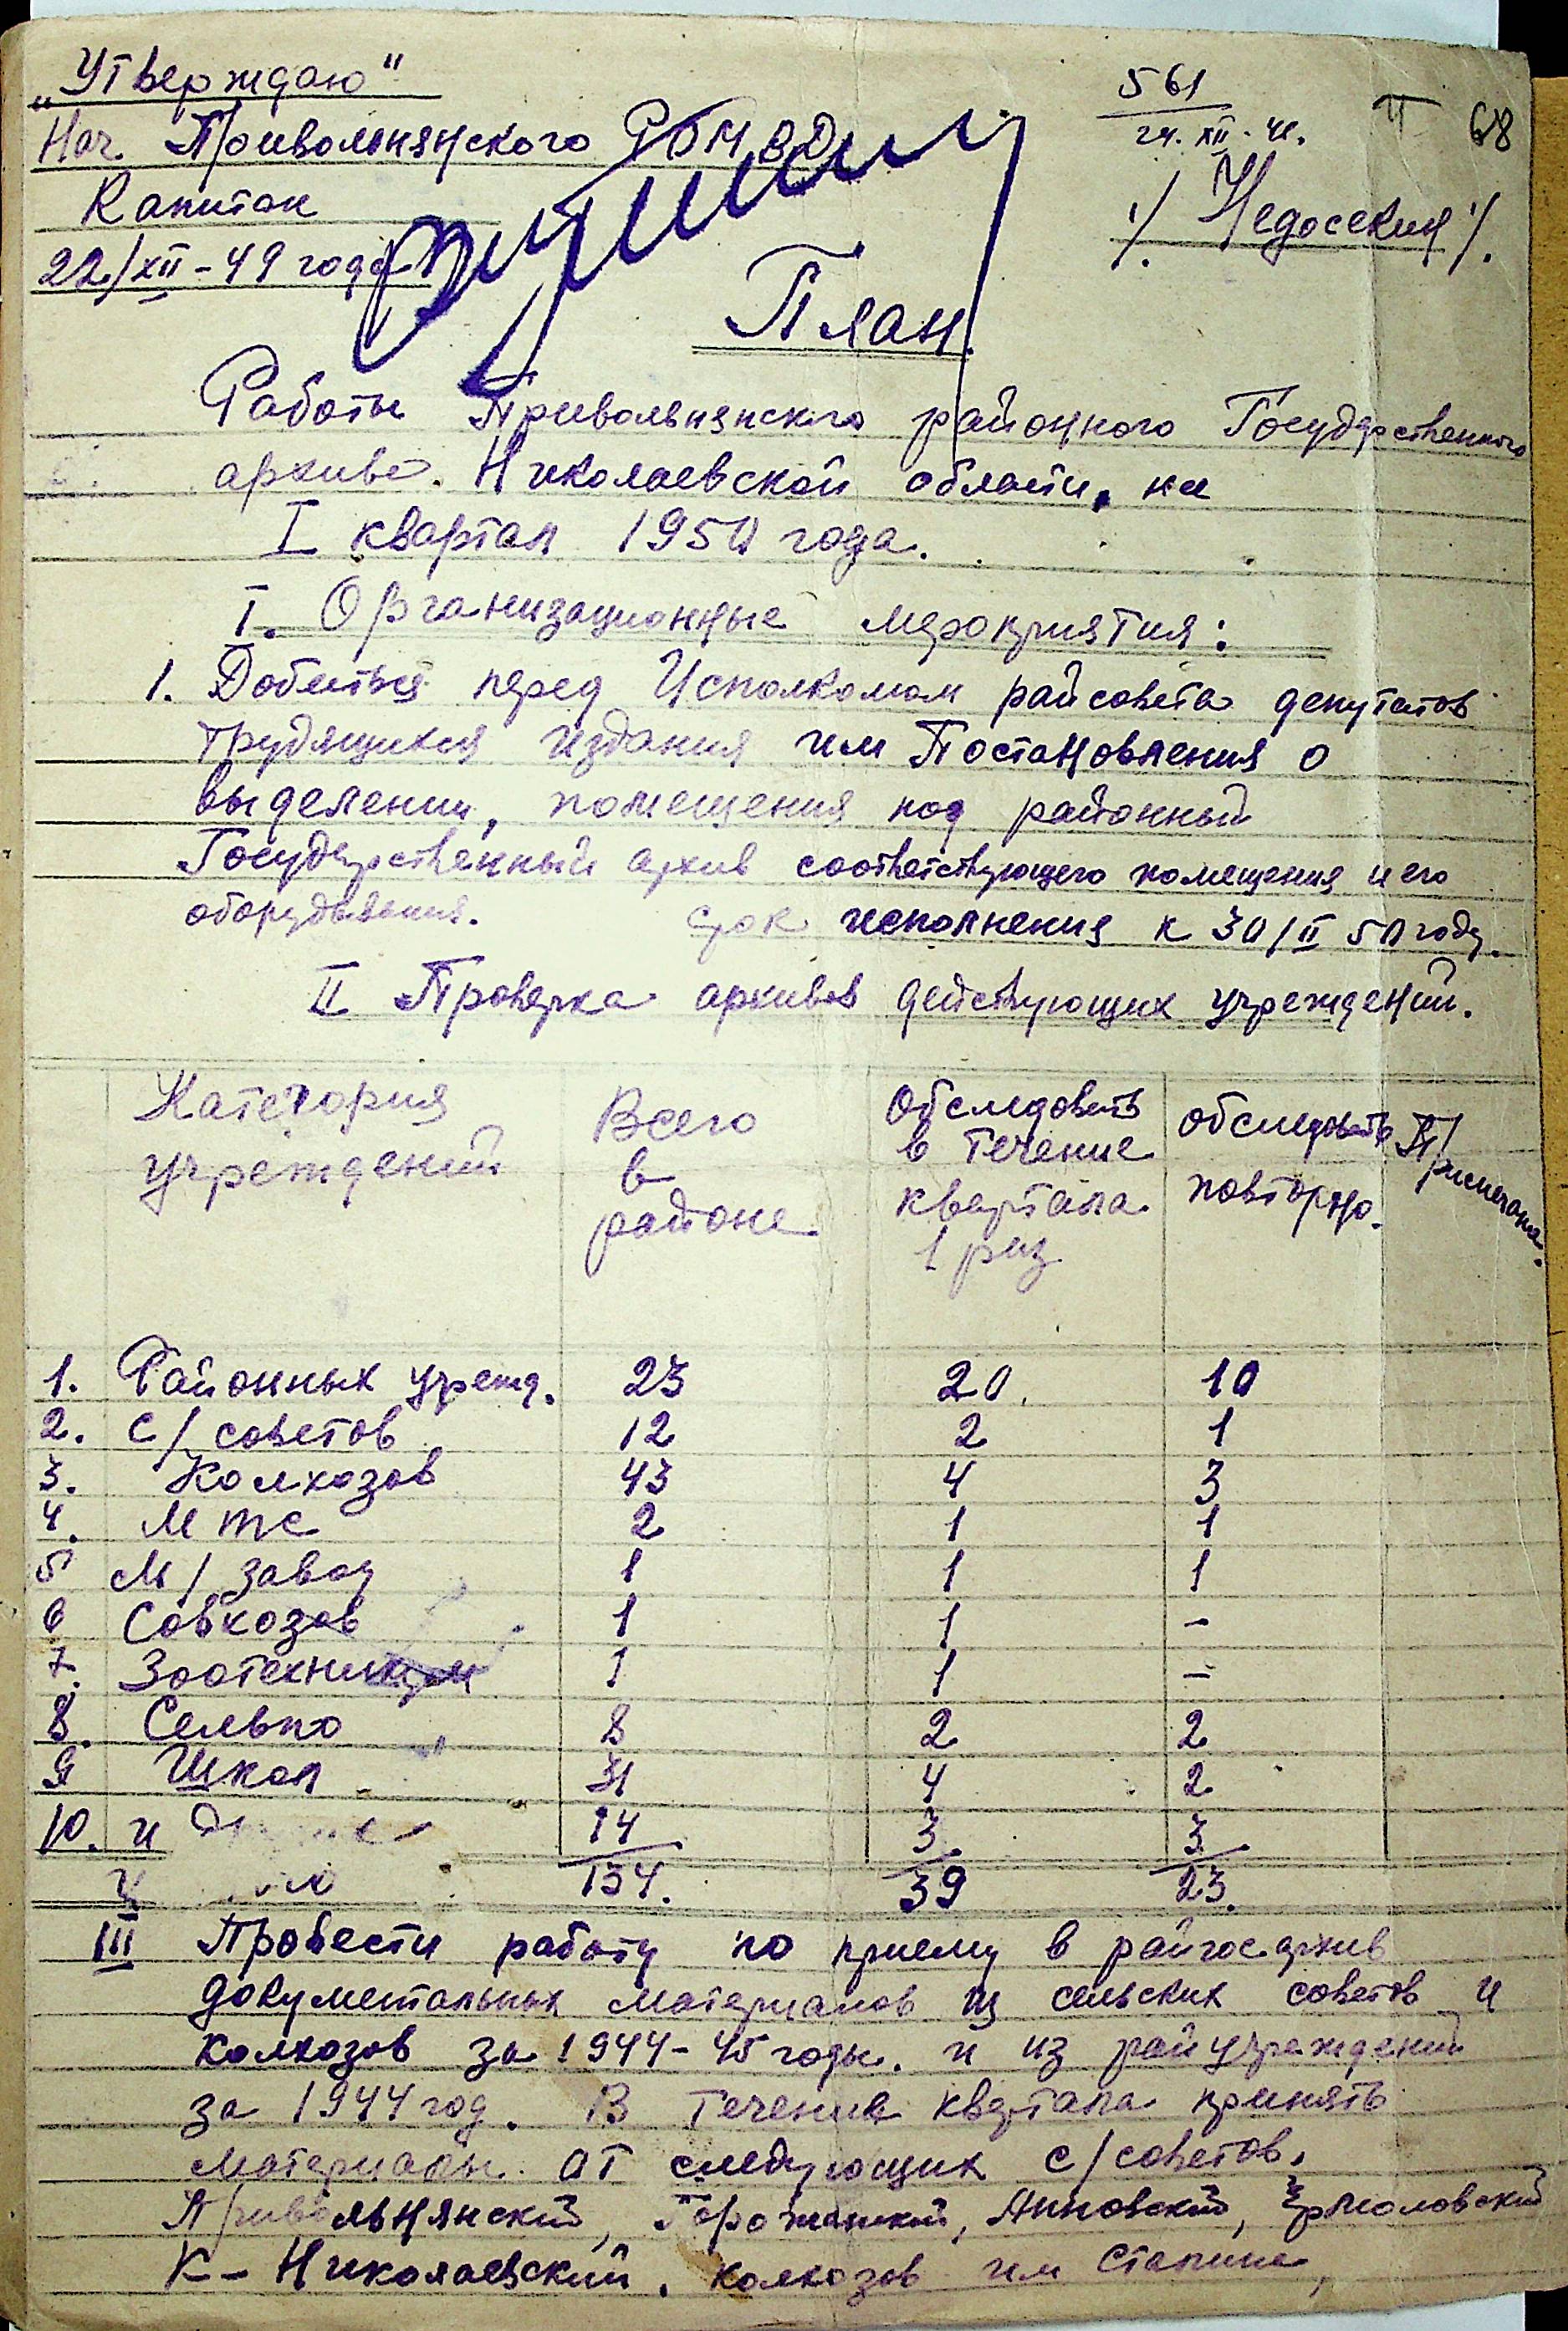 „Утверждаю"
Нач. Привольнянского РОМВД
Капитан
22/XII-49 года
561
24.XII-49.
68
/. Недосекин /.
План.
Работы Привольнянского районного Государственного
архива. Николаевской области, на
I квартал 1950 года.
I. Организационные мероприятия:
1. Добиться перед Исполкомом райсовета депутатов
трудящихся издания им Постановления о
выделении, помещения под районный
Государственный архив соответствующего помещения и его
оборудования. Срок исполнения к 30/II 50 году.
II Проверка архивов действующих учреждений.
Категория учреждений
Всего в районе
Обследовать в течение квартала 1 раз
обследовать повторно.
Примечание.
1. Районных учрежд. 23 20. 10
2. С/советов 12 2 1
3. Колхозов 43 4 3
4. Мтс 2 1 1
5 М/завод 1 1 1
6 Совхозов 1 1 -
7. Зоотехникум 1 1 -
8. Сельпо 8 2 2
9 Школ 31 4 2
10. и 14 3 3
134. 39 23.
III Провести работу по приему в райгосархив
документальных материалов из сельских советов и
колхозов за 1944-45 годы. и из райучреждений
за 1944 год. В течение квартала принять
материалы от следующих с/советов.
Привольнянский, Горожанский, Анновский, Ермоловский
К-Николаевский. колхозов им Сталина,